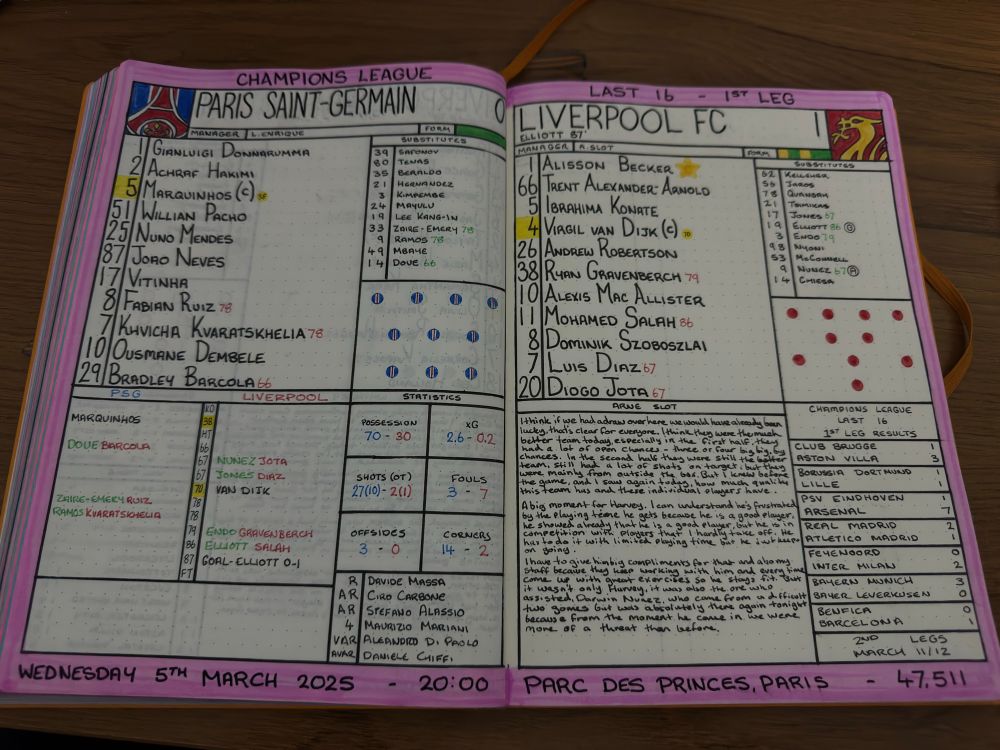 CHAMPIONS LEAGUE
PARIS SAINT-GERMAIN 0
MANAGER L. ENRIQUE FORM
1 GIANLUIGI DONNARUMMA
2 ACHRAF HAKIMI
5 MARQUINHOS (C)
51 WILLIAN PACHO
25 NUNO MENDES
87 JOAO NEVES
17 VITINHA
8 FABIAN RUIZ 78
7 KHVICHA KVARATSKHELIA 78
10 OUSMANE DEMBELE
29 BRADLEY BARCOLA 66
SUBSTITUTES
39 SAFONOV
80 TENAS
35 BERALDO
21 HERNANDEZ
3 KIMPEMBE
24 MAYULU
19 LEE KANG-IN
33 ZAIRE-EMERY 78
9 RAMOS 78
49 MBAYE
14 DOUE 66
PSG LIVERPOOL
KO
MARQUINHOS 38
HT
DOUE BARCOLA 66
67 NUNEZ JOTA
67 JONES DIAZ
70 VAN DIJK
ZAIRE-EMERY RUIZ 78
RAMOS KVARATSKHELIA 78
79 ENDO GRAVENBERCH
86 ELLIOTT SALAH
87 GOAL-ELLIOTT 0-1
FT
STATISTICS
POSSESSION
70 - 30
xG
2.6 - 0.2
SHOTS (OT)
27(10) - 2(1)
FOULS
3 - 7
OFFSIDES
3 - 0
CORNERS
14 - 2
R DAVIDE MASSA
AR CIRO CARBONE
AR STEFANO ALASSIO
4 MAURIZIO MARIANI
VAR ALEANDRO DI PAOLO
AVAR DANIELE CHIFFI
WEDNESDAY 5TH MARCH 2025 - 20:00
LAST 16 - 1ST LEG
LIVERPOOL FC 1
ELLIOTT 87'
MANAGER A. SLOT FORM
1 ALISSON BECKER
66 TRENT ALEXANDER-ARNOLD
5 IBRAHIMA KONATE
4 VIRGIL VAN DIJK (C) 70
26 ANDREW ROBERTSON
38 RYAN GRAVENBERCH 79
10 ALEXIS MAC ALLISTER
11 MOHAMED SALAH 86
8 DOMINIK SZOBOSZLAI
7 LUIS DIAZ 67
20 DIOGO JOTA 67
SUBSTITUTES
62 KELLEHER
56 JAROS
78 QUANSAH
21 TSIMIKAS
17 JONES 67
19 ELLIOTT 86 G
3 ENDO 79
98 NYONI
53 MCCONNELL
9 NUNEZ 67 A
14 CHIESA
ARNE SLOT
I think if we had a draw over here we would have already been
lucky, that's clear for everyone. I think they were the much
better team today, especially in the first half, they
had a lot of open chances - three or four big, big, big
chances. In the second half they were still the better
team, still had a lot of shots on target, but they
were mainly from outside the box. But I knew before
the game, and I saw again today, how much quality
this team has and these individual players have.
A big moment for Harvey. I can understand he's frustrated
by the playing time he gets because he is a good player,
he showed already that he is a good player, but he is in
competition with players that I hardly take off. He
has to do it with limited playing time but he just keeps
on going.
I have to give him big compliments for that and also my
staff because they keep working with him and every time
come up with great exercises so he stays fit. But
it wasn't only Harvey, it was also the one who
assisted, Darwin Nunez, who came from a difficult
two games but was absolutely there again tonight
because from the moment he came in we were
more of a threat than before.
CHAMPIONS LEAGUE
LAST 16
1ST LEG RESULTS
CLUB BRUGGE 1
ASTON VILLA 3
BORUSSIA DORTMUND 1
LILLE 1
PSV EINDHOVEN 1
ARSENAL 7
REAL MADRID 2
ATLETICO MADRID 1
FEYENOORD 0
INTER MILAN 2
BAYERN MUNICH 3
BAYER LEVERKUSEN 0
BENFICA 0
BARCELONA 1
2ND LEGS
MARCH 11/12
PARC DES PRINCES, PARIS - 47,511